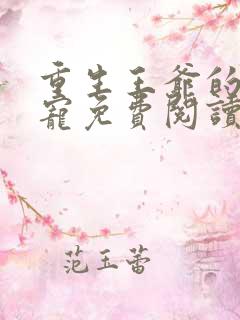 重生王爺的
寵免費閱讀
范玉蕾